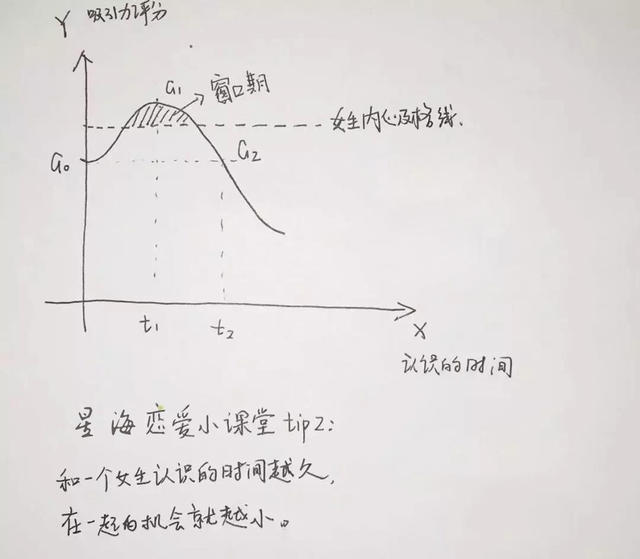 Y 吸引力评分
a1
窗口期
女生内心及格线.
a0
a2
t1 t2
X
认识的时间
星海恋爱小课堂tip2:
和一个女生认识的时间越久,
在一起的机会就越小。